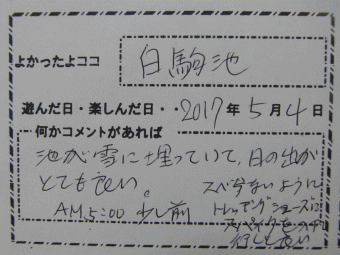 よかったよココ
白駒池
遊んだ日・楽しんだ日・・2017年5月4日
何かコメントがあれば
池が雪に埋っていて、日の出が
とても良い。
スベらないように
AM.5:00 少し前
トレッキングシューズに
スパイクを
行くと良い